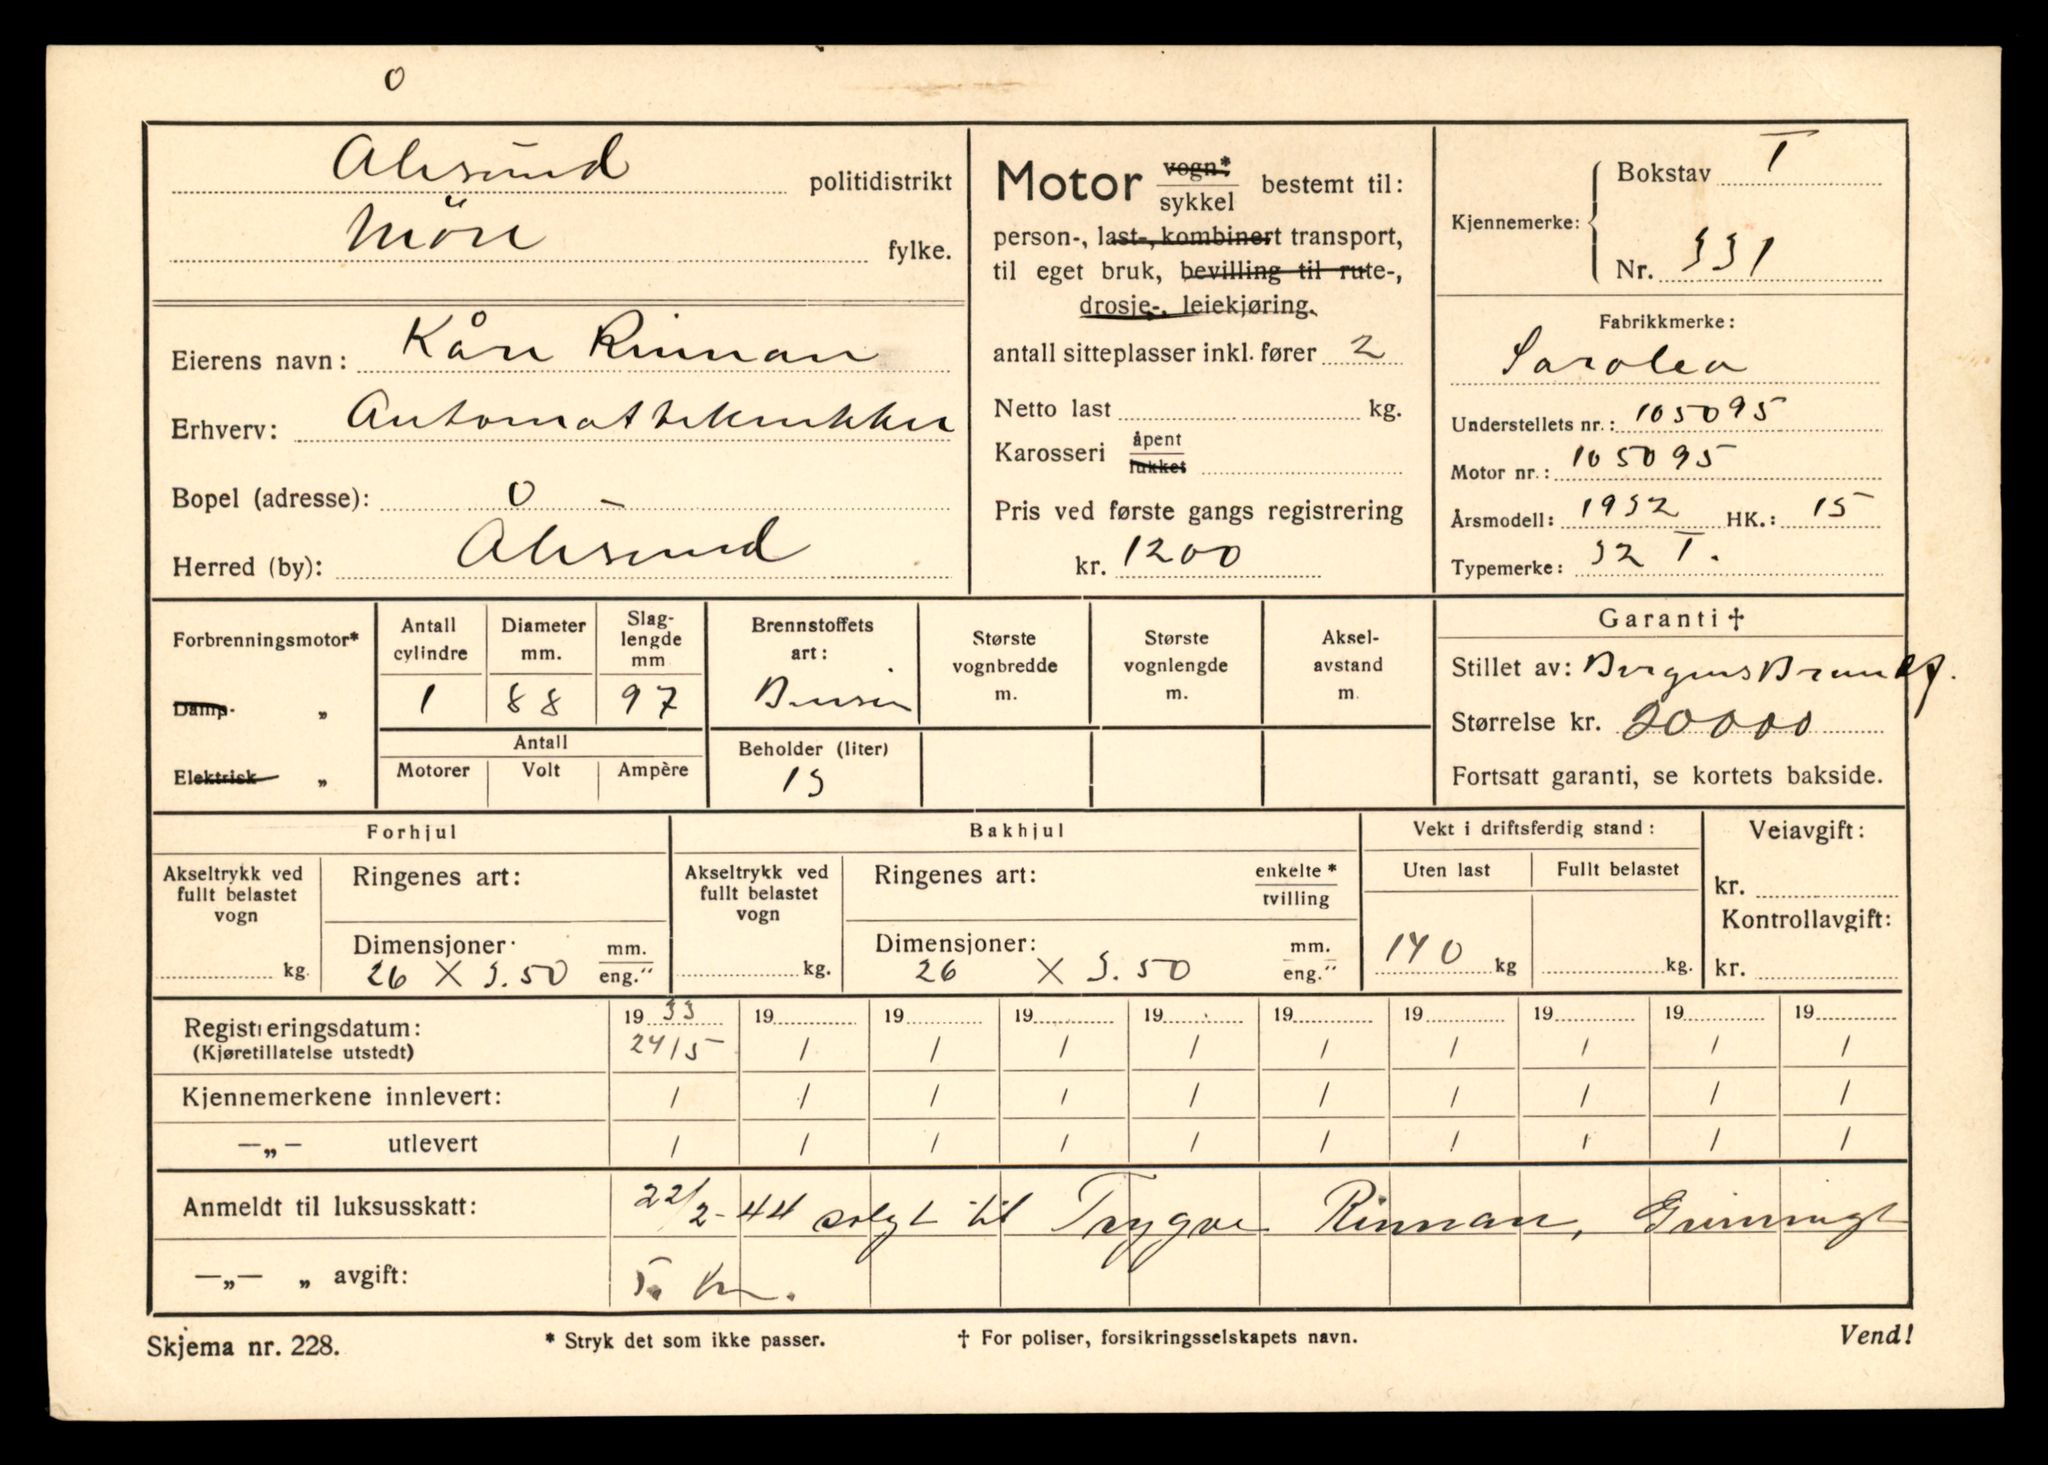 Ålesund politidistrikt
Möre fylke.
Eierens navn: Kåre Rinnan
Erhverv: Automattekniker
Bopel (adresse):
Herred (by): Ålesund
Motor vogn* / sykkel bestemt til:
person-, last-, kombinert transport,
til eget bruk, bevilling til rute-,
drosje-, leiekjøring.
antall sitteplasser inkl. fører 2
Netto last kg.
Karosseri åpent / lukket
Pris ved første gangs registrering
kr. 1200
Kjennemerke: Bokstav T
Nr. 331
Fabrikkmerke:
Sarolea
Understellets nr.: 105095
Motor nr.: 105095
Årsmodell: 1932 HK.: 15
Typemerke: 32 T.
Forbrenningsmotor*
Damp- „
Elektrisk „
Antall cylindre
1
Diameter mm.
88
Slaglengde mm
97
Antall
Motorer Volt Ampère
Brennstoffets art:
Bensin
Beholder (liter)
15
Største vognbredde m.
Største vognlengde m.
Akselavstand m.
Garanti †
Stillet av: Bergens Brandf.
Størrelse kr. 20000
Fortsatt garanti, se kortets bakside.
Forhjul
Akseltrykk ved fullt belastet vogn
kg.
Ringenes art:
Dimensjoner: mm. / eng.″
26 X 3.50
Bakhjul
Akseltrykk ved fullt belastet vogn
kg.
Ringenes art: enkelte* / tvilling
Dimensjoner: mm. / eng.″
26 X 3.50
Vekt i driftsferdig stand:
Uten last Fullt belastet
140 kg kg.
Veiavgift:
kr.
Kontrollavgift:
kr.
Registreringsdatum: 1933 19 19 19 19 19 19 19 19 19
(Kjøretillatelse utstedt) 24/5 / / / / / / / / /
Kjennemerkene innlevert: / / / / / / / / / /
—„— utlevert / / / / / / / / / /
Anmeldt til luksusskatt: 22/2-44 solgt til Trygve Rinnan,
—„— „ avgift:
Skjema nr. 228. * Stryk det som ikke passer. † For poliser, forsikringsselskapets navn. Vend!